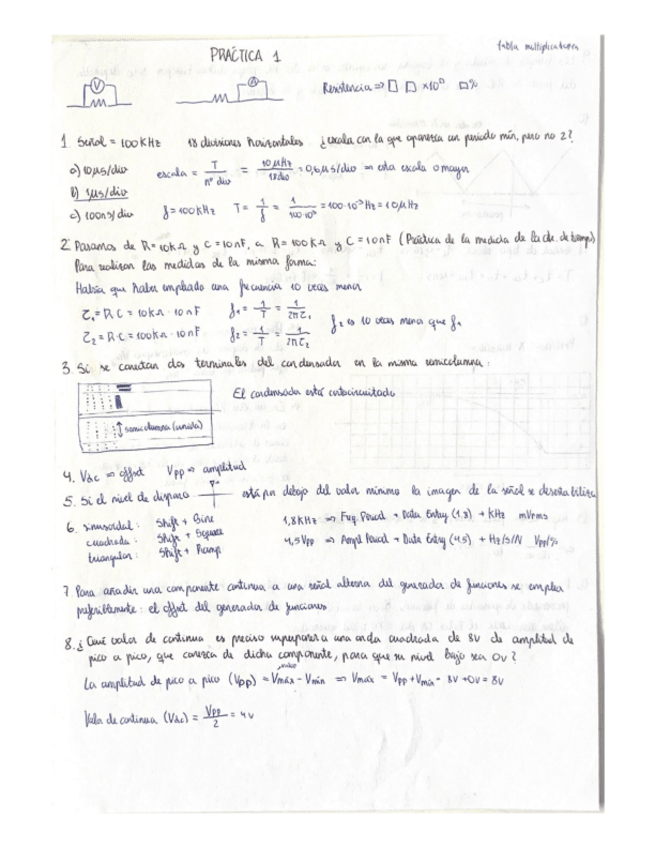 tabla multiplicadores
PRÁCTICA 1
V
A
Resistencia ⇒ □ □ ×10^□ □%
1. Señal = 100KHz 18 divisiones horizontales ¿escala con la que aparezca un periodo mín, pero no 2?
a) 10μs/div
escala = T / nº div = 10μHz / 18div = 0,6μs/div ⇒ esta escala o mayor
b) 1μs/div
c) 100ns/div
f = 100KHz T = 1/f = 1 / 100·10³ = 100·10⁻³Hz = 10μHz
2. Pasamos de R=10KΩ y C=10nF, a R=100KΩ y C=10nF (Práctica de la medida de la cte. de tiempo)
Para realizar las medidas de la misma forma:
Habría que haber empleado una frecuencia 10 veces menor
τ₁ = R·C = 10KΩ · 10nF f₁ = 1/T = 1/2πτ₁
f₂ es 10 veces menor que f₁
τ₂ = R·C = 100KΩ · 10nF f₂ = 1/T = 1/2πτ₂
3. Si se conectan dos terminales del condensador en la misma semicolumna:
El condensador está cortocircuitado
semicolumna (unida)
4. Vdc ⇒ offset Vpp ⇒ amplitud
5. Si el nivel de disparo está por debajo del valor mínimo la imagen de la señal se desestabiliza
6. sinusoidal: Shift + Sine
cuadrada: Shift + Square
triangular: Shift + Ramp
1,8KHz ⇒ Freq Pulsad + Data Entry (1.8) + KHz mVrms
4,5Vpp ⇒ Ampl Pulsad + Data Entry (4.5) + Hz/S/N Vpp/%
7. Para añadir una componente continua a una señal alterna del generador de funciones se emplea
preferiblemente: el offset del generador de funciones
8. ¿Qué valor de continua es preciso superponer a una onda cuadrada de 8V de amplitud de
pico a pico, que carezca de dicha componente, para que su nivel bajo sea 0V?
La amplitud de pico a pico (Vpp) = Vmáx - Vmín ⇒ Vmáx = Vpp + Vmín = 8V + 0V = 8V
Valor de continua (Vdc) = Vpp / 2 = 4V